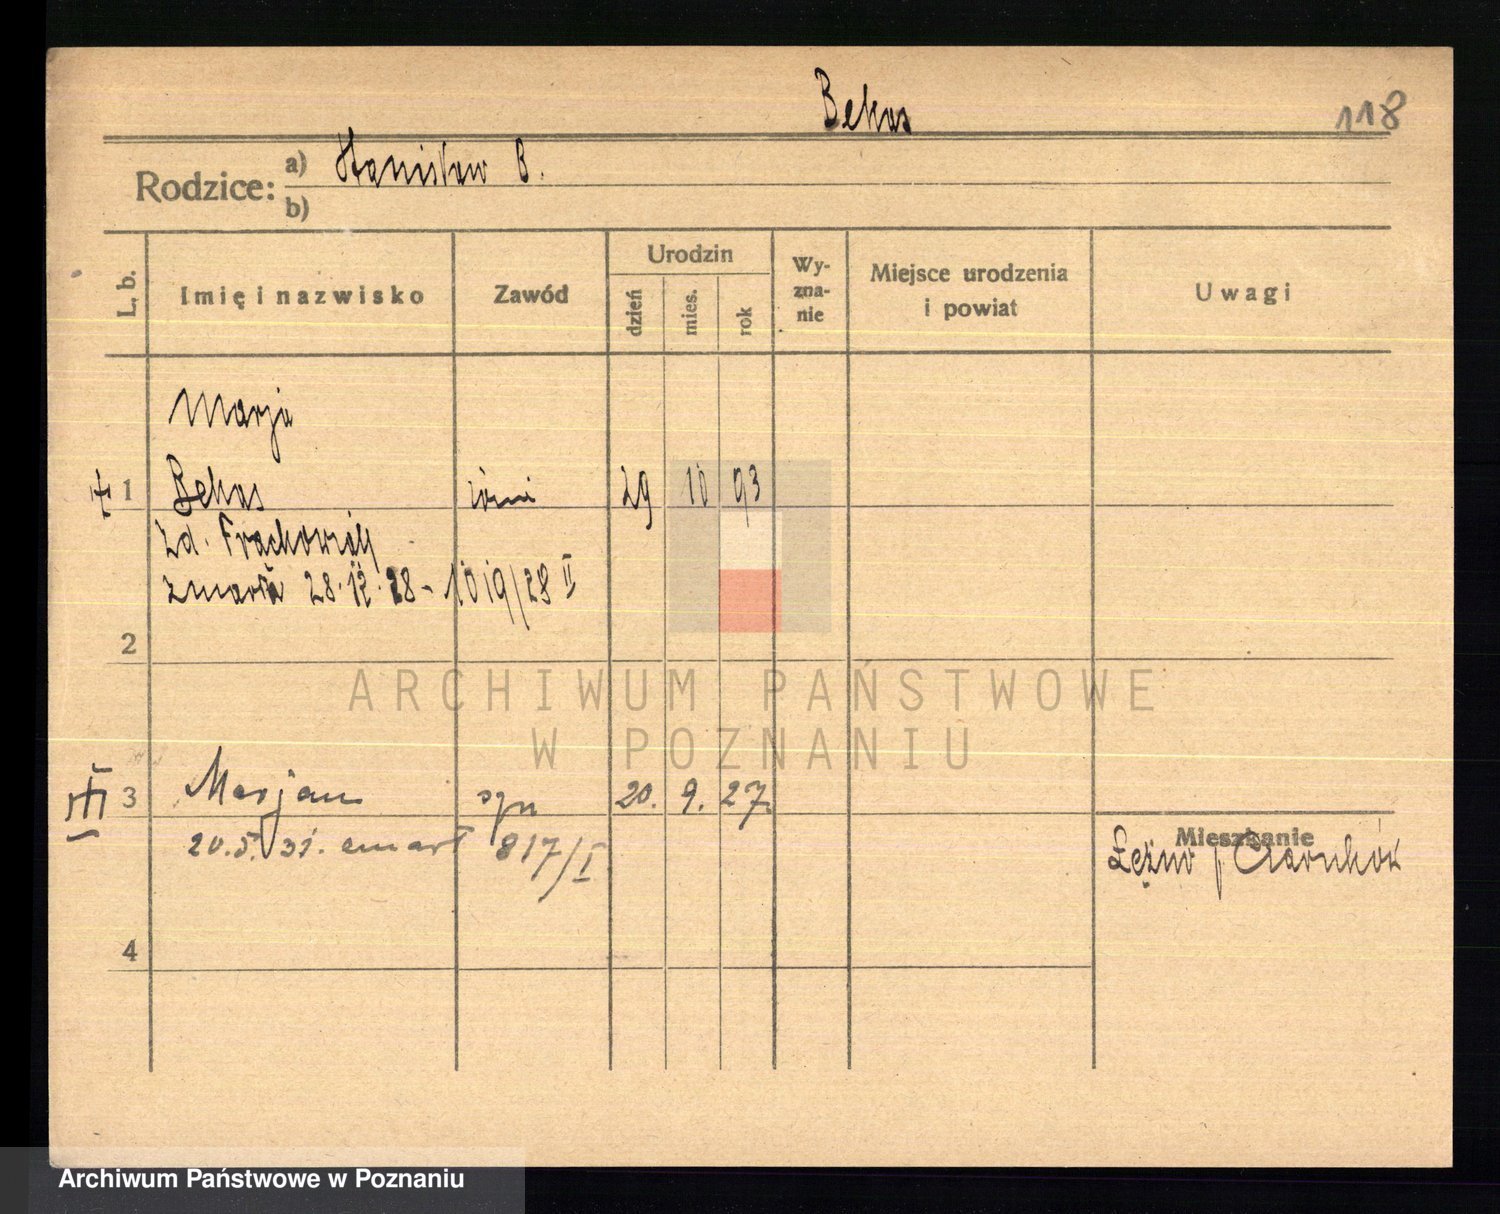 Bekas
118
Rodzice: a) Stanisław B.
b)
L. b. Imię i nazwisko Zawód Urodzin dzień mies. rok Wy-zna-nie Miejsce urodzenia i powiat Uwagi
Marja
1 Bekas żona 29 10 93
zd.
zmarła 28.12.28 - 1019/28 II
2
ARCHIWUM PAŃSTWOWE
W POZNANIU
3 Marjan syn 20. 9. 27.
20.5.31. zmarł 817/I
Mieszkanie
4
Archiwum Państwowe w Poznaniu